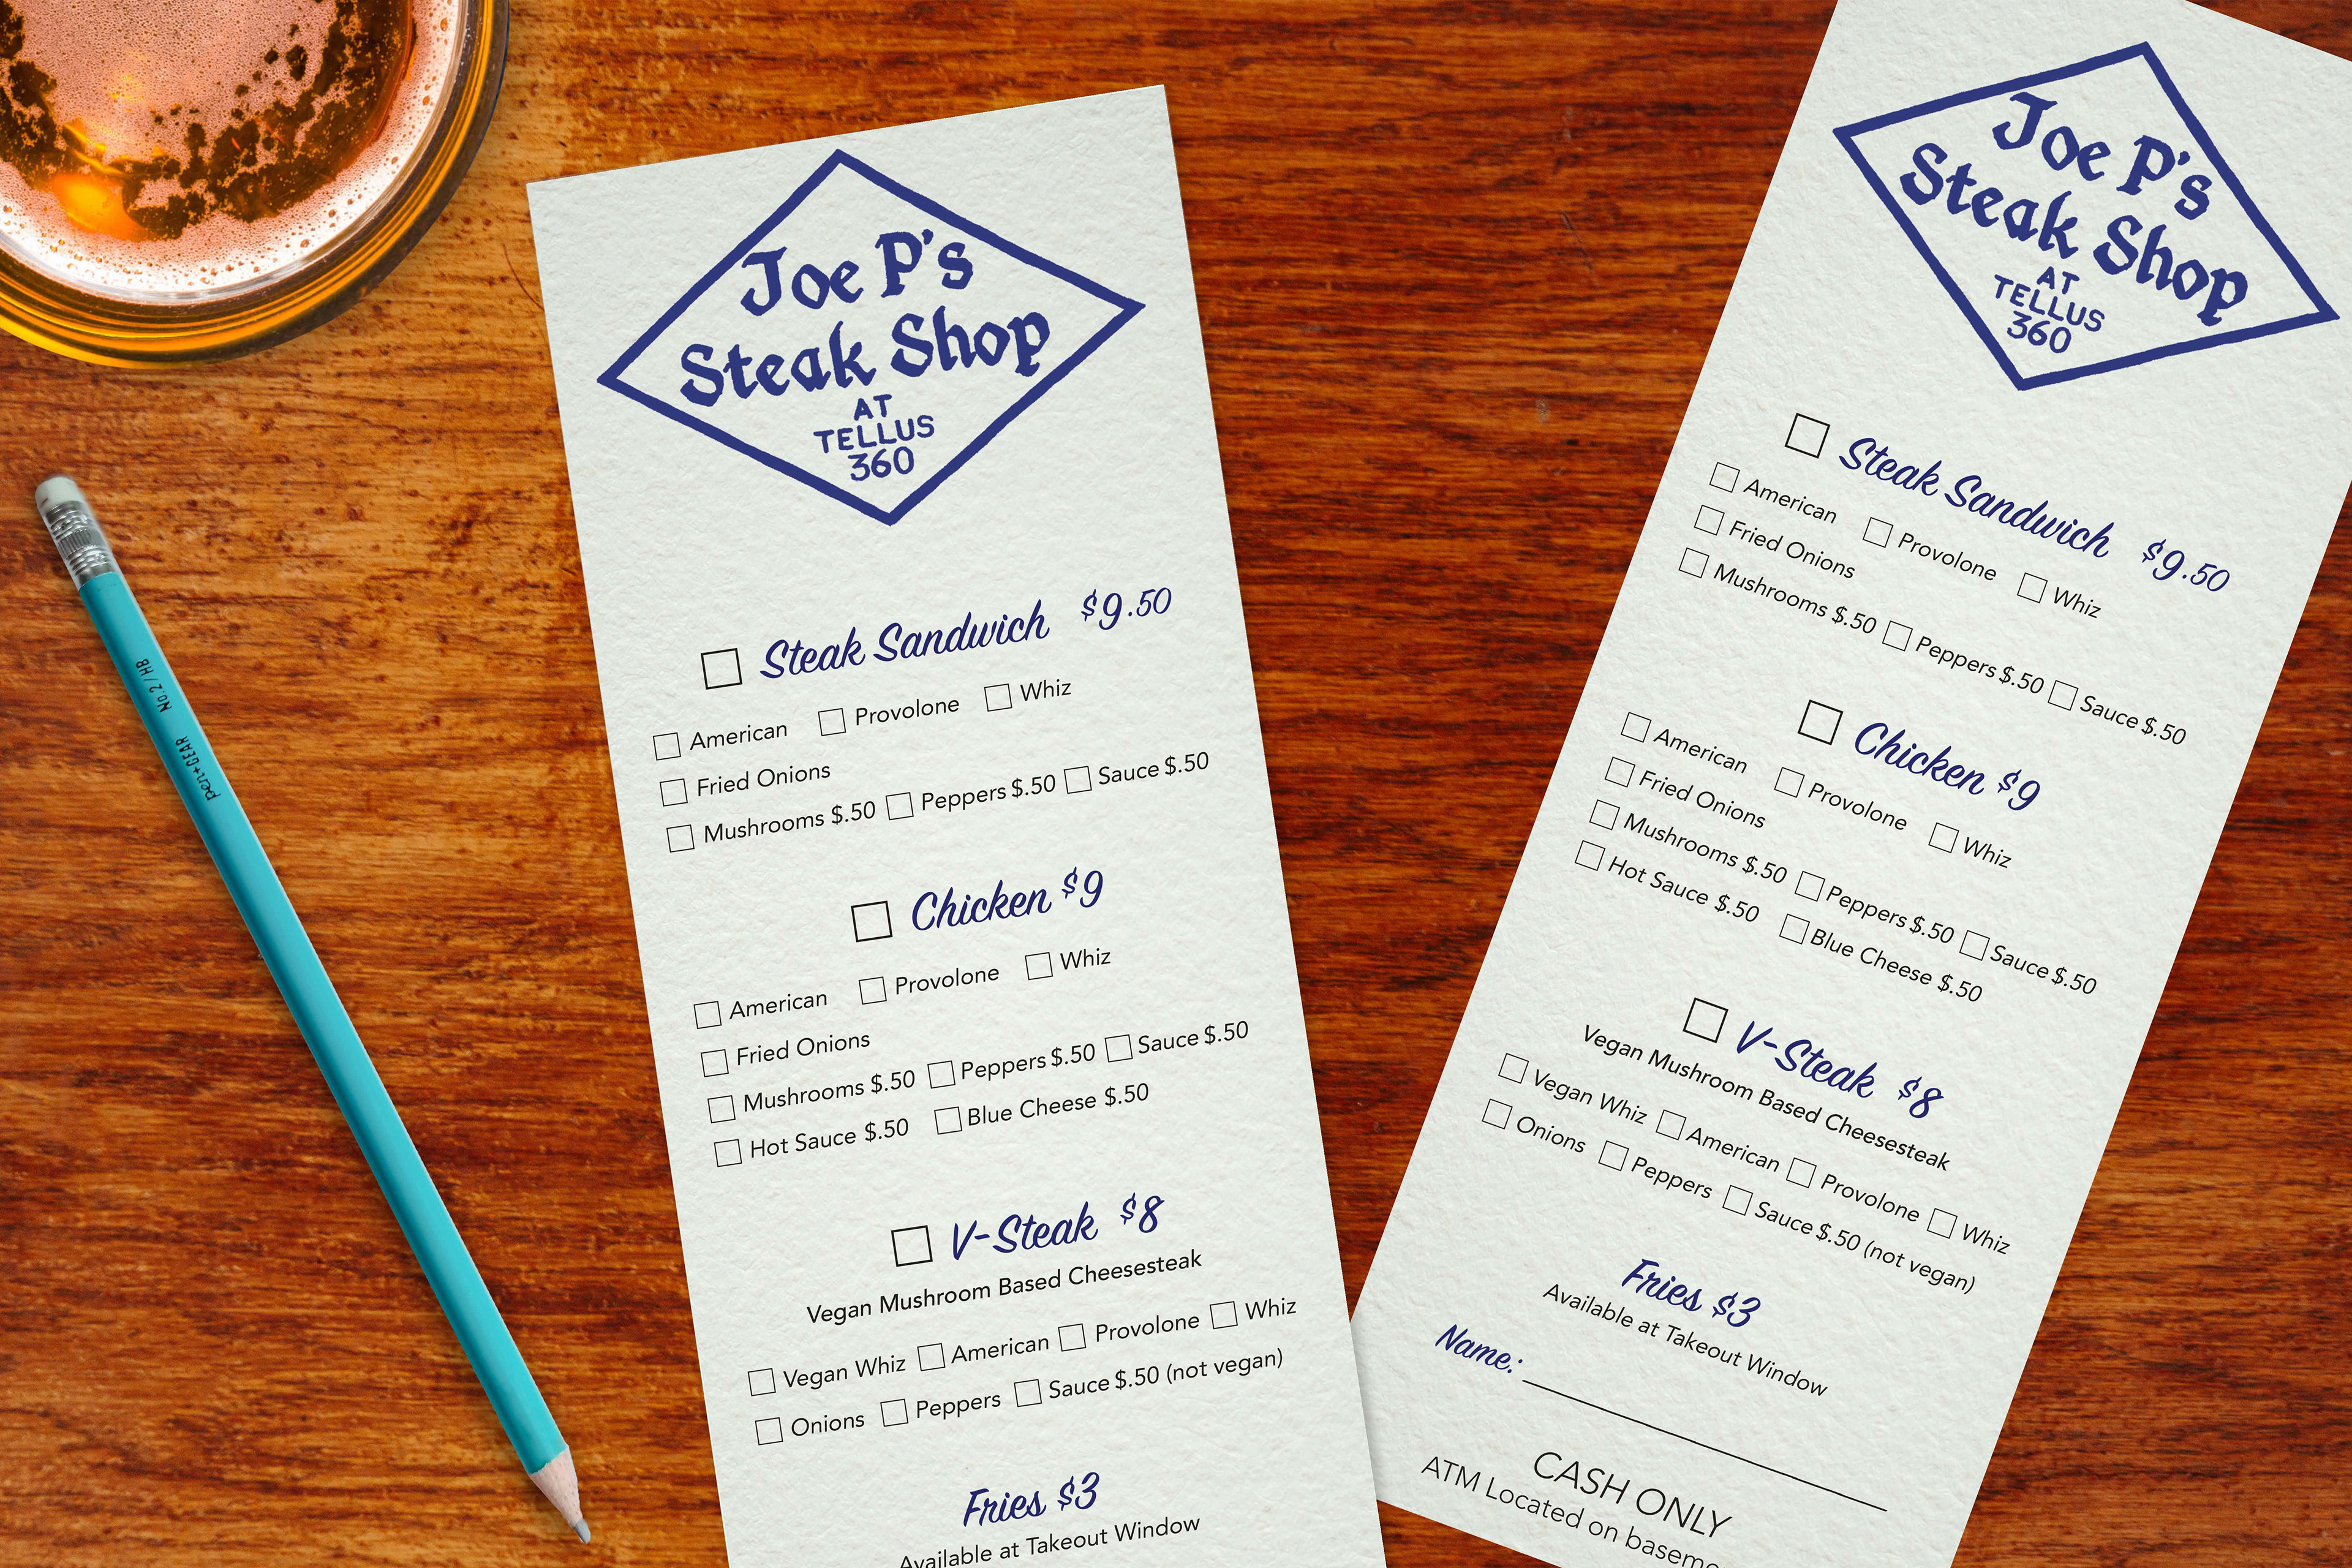 Joe P's
Steak Shop
AT
TELLUS
360
Steak Sandwich $9.50
American Provolone Whiz
Fried Onions
Mushrooms $.50 Peppers $.50 Sauce $.50
Chicken $9
American Provolone Whiz
Fried Onions
Mushrooms $.50 Peppers $.50 Sauce $.50
Hot Sauce $.50 Blue Cheese $.50
V-Steak $8
Vegan Mushroom Based Cheesesteak
Vegan Whiz American Provolone Whiz
Onions Peppers Sauce $.50 (not vegan)
Fries $3
Available at Takeout Window
Joe P's
Steak Shop
AT
TELLUS
360
Steak Sandwich $9.50
American Provolone Whiz
Fried Onions
Mushrooms $.50 Peppers $.50 Sauce $.50
Chicken $9
American Provolone Whiz
Fried Onions
Mushrooms $.50 Peppers $.50 Sauce $.50
Hot Sauce $.50 Blue Cheese $.50
V-Steak $8
Vegan Mushroom Based Cheesesteak
Vegan Whiz American Provolone Whiz
Onions Peppers Sauce $.50 (not vegan)
Fries $3
Available at Takeout Window
Name:
CASH ONLY
ATM Located on
No.2/HB pen+GEAR